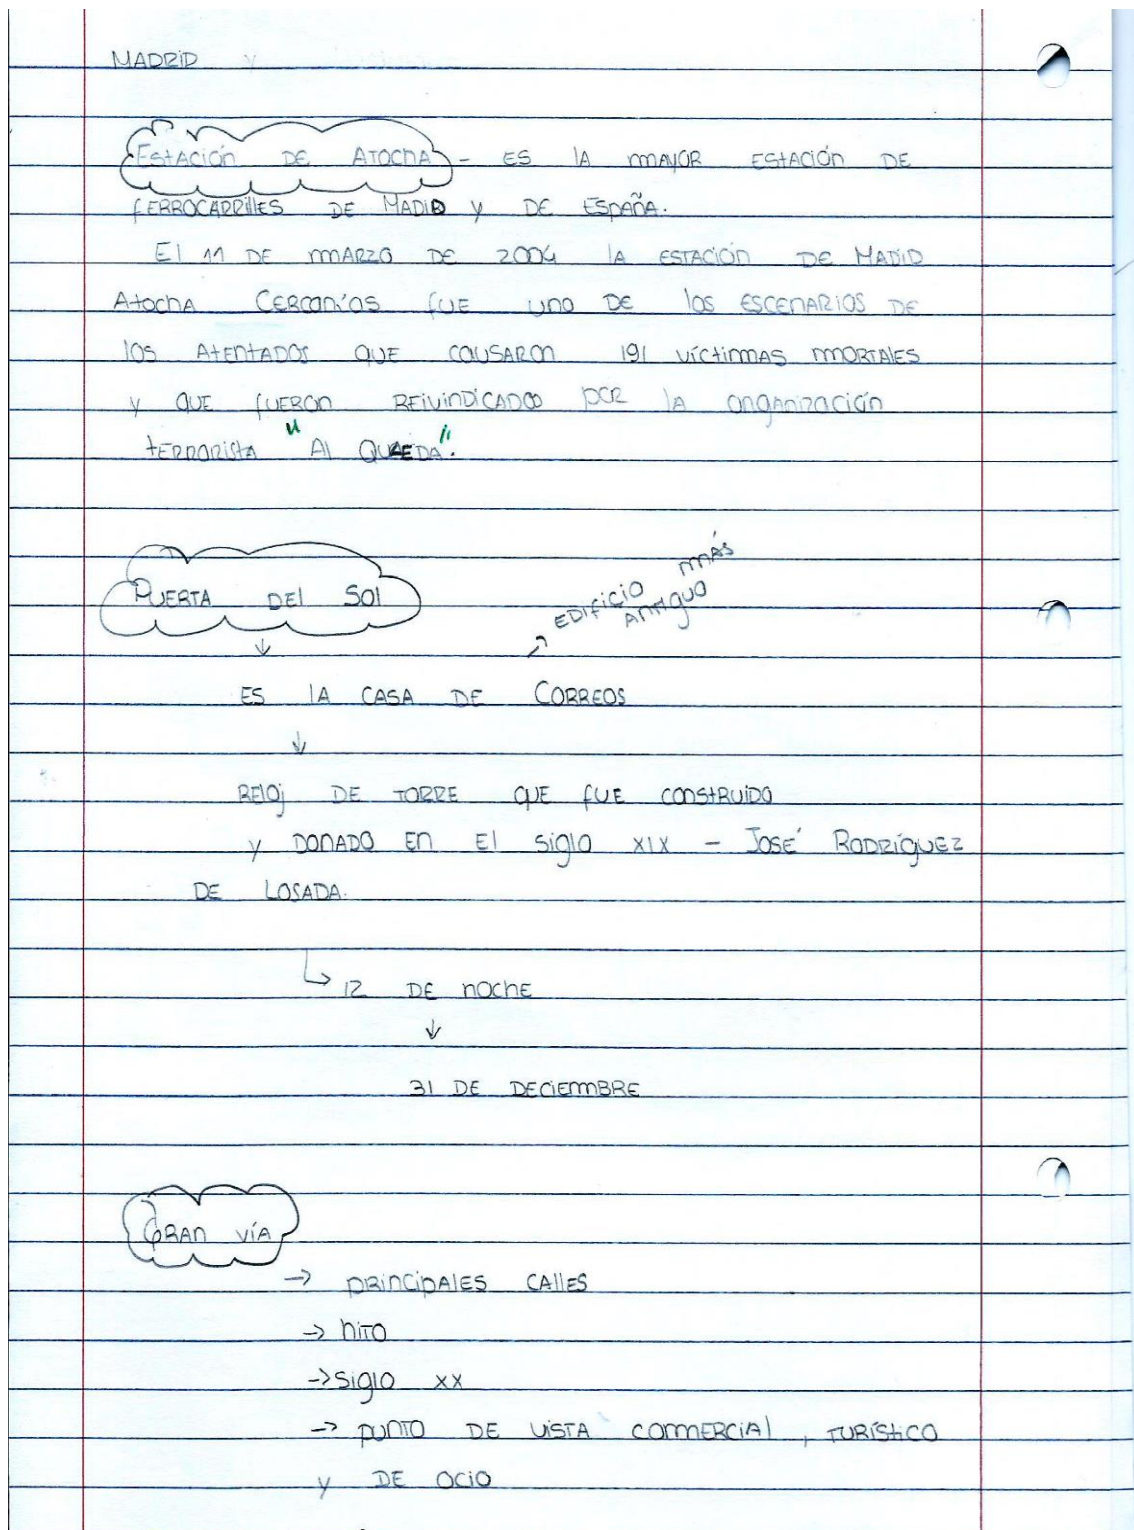 MADRID Y
Estación DE Atocha - ES la mayor ESTACIÓN DE
FERROCARRILLES DE MADID y DE ESPAÑA.
El 11 DE MARZO DE 2004 la ESTACIÓN DE MADID
Atocha CERCANÍAS FUE UNO DE los ESCENARIOS DE
los Atentados QUE CAUSARON 191 víctimmas MORTALES
y QUE FUERON REIVINDICADOO POR la organización
terrorista "Al QUAEDA".
PUERTA DEl SOl
EDIFICIO MÁS
ANTIGUO
ES lA CASA DE CORREOS
RElOj DE TORRE QUE FUE CONSTRUIDO
y DONADO EN El SIGlO XIX - JOSÉ RODRÍGUEZ
DE LOSADA.
12 DE NOCHE
31 DE DECIEMBRE
GRAN VÍA
→ PRINCIPALES CALLES
→ hito
→ siglo XX
→ PUNTO DE VISTA COMMERCIAL, TURÍSTICO
y DE OCIO